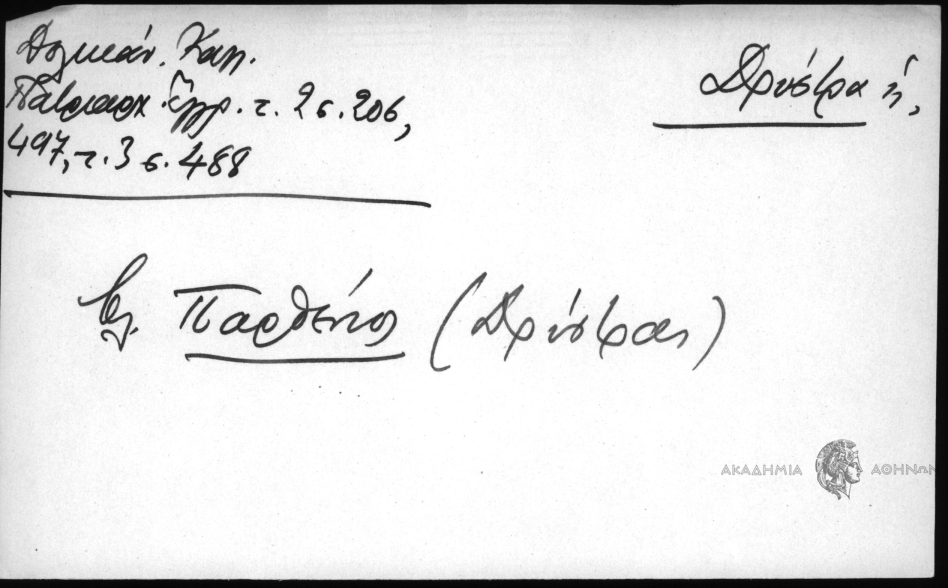 Δελικάν. Καλ.
Πατριαρχ. Ἔγγρ. τ. 2 σ. 206,
497, τ. 3 σ. 488
Δρύστρα ἡ,
Βλ. Παρθένιος (Δρύστρας)
ΑΚΑΔΗΜΙΑ ΑΘΗΝΩΝ